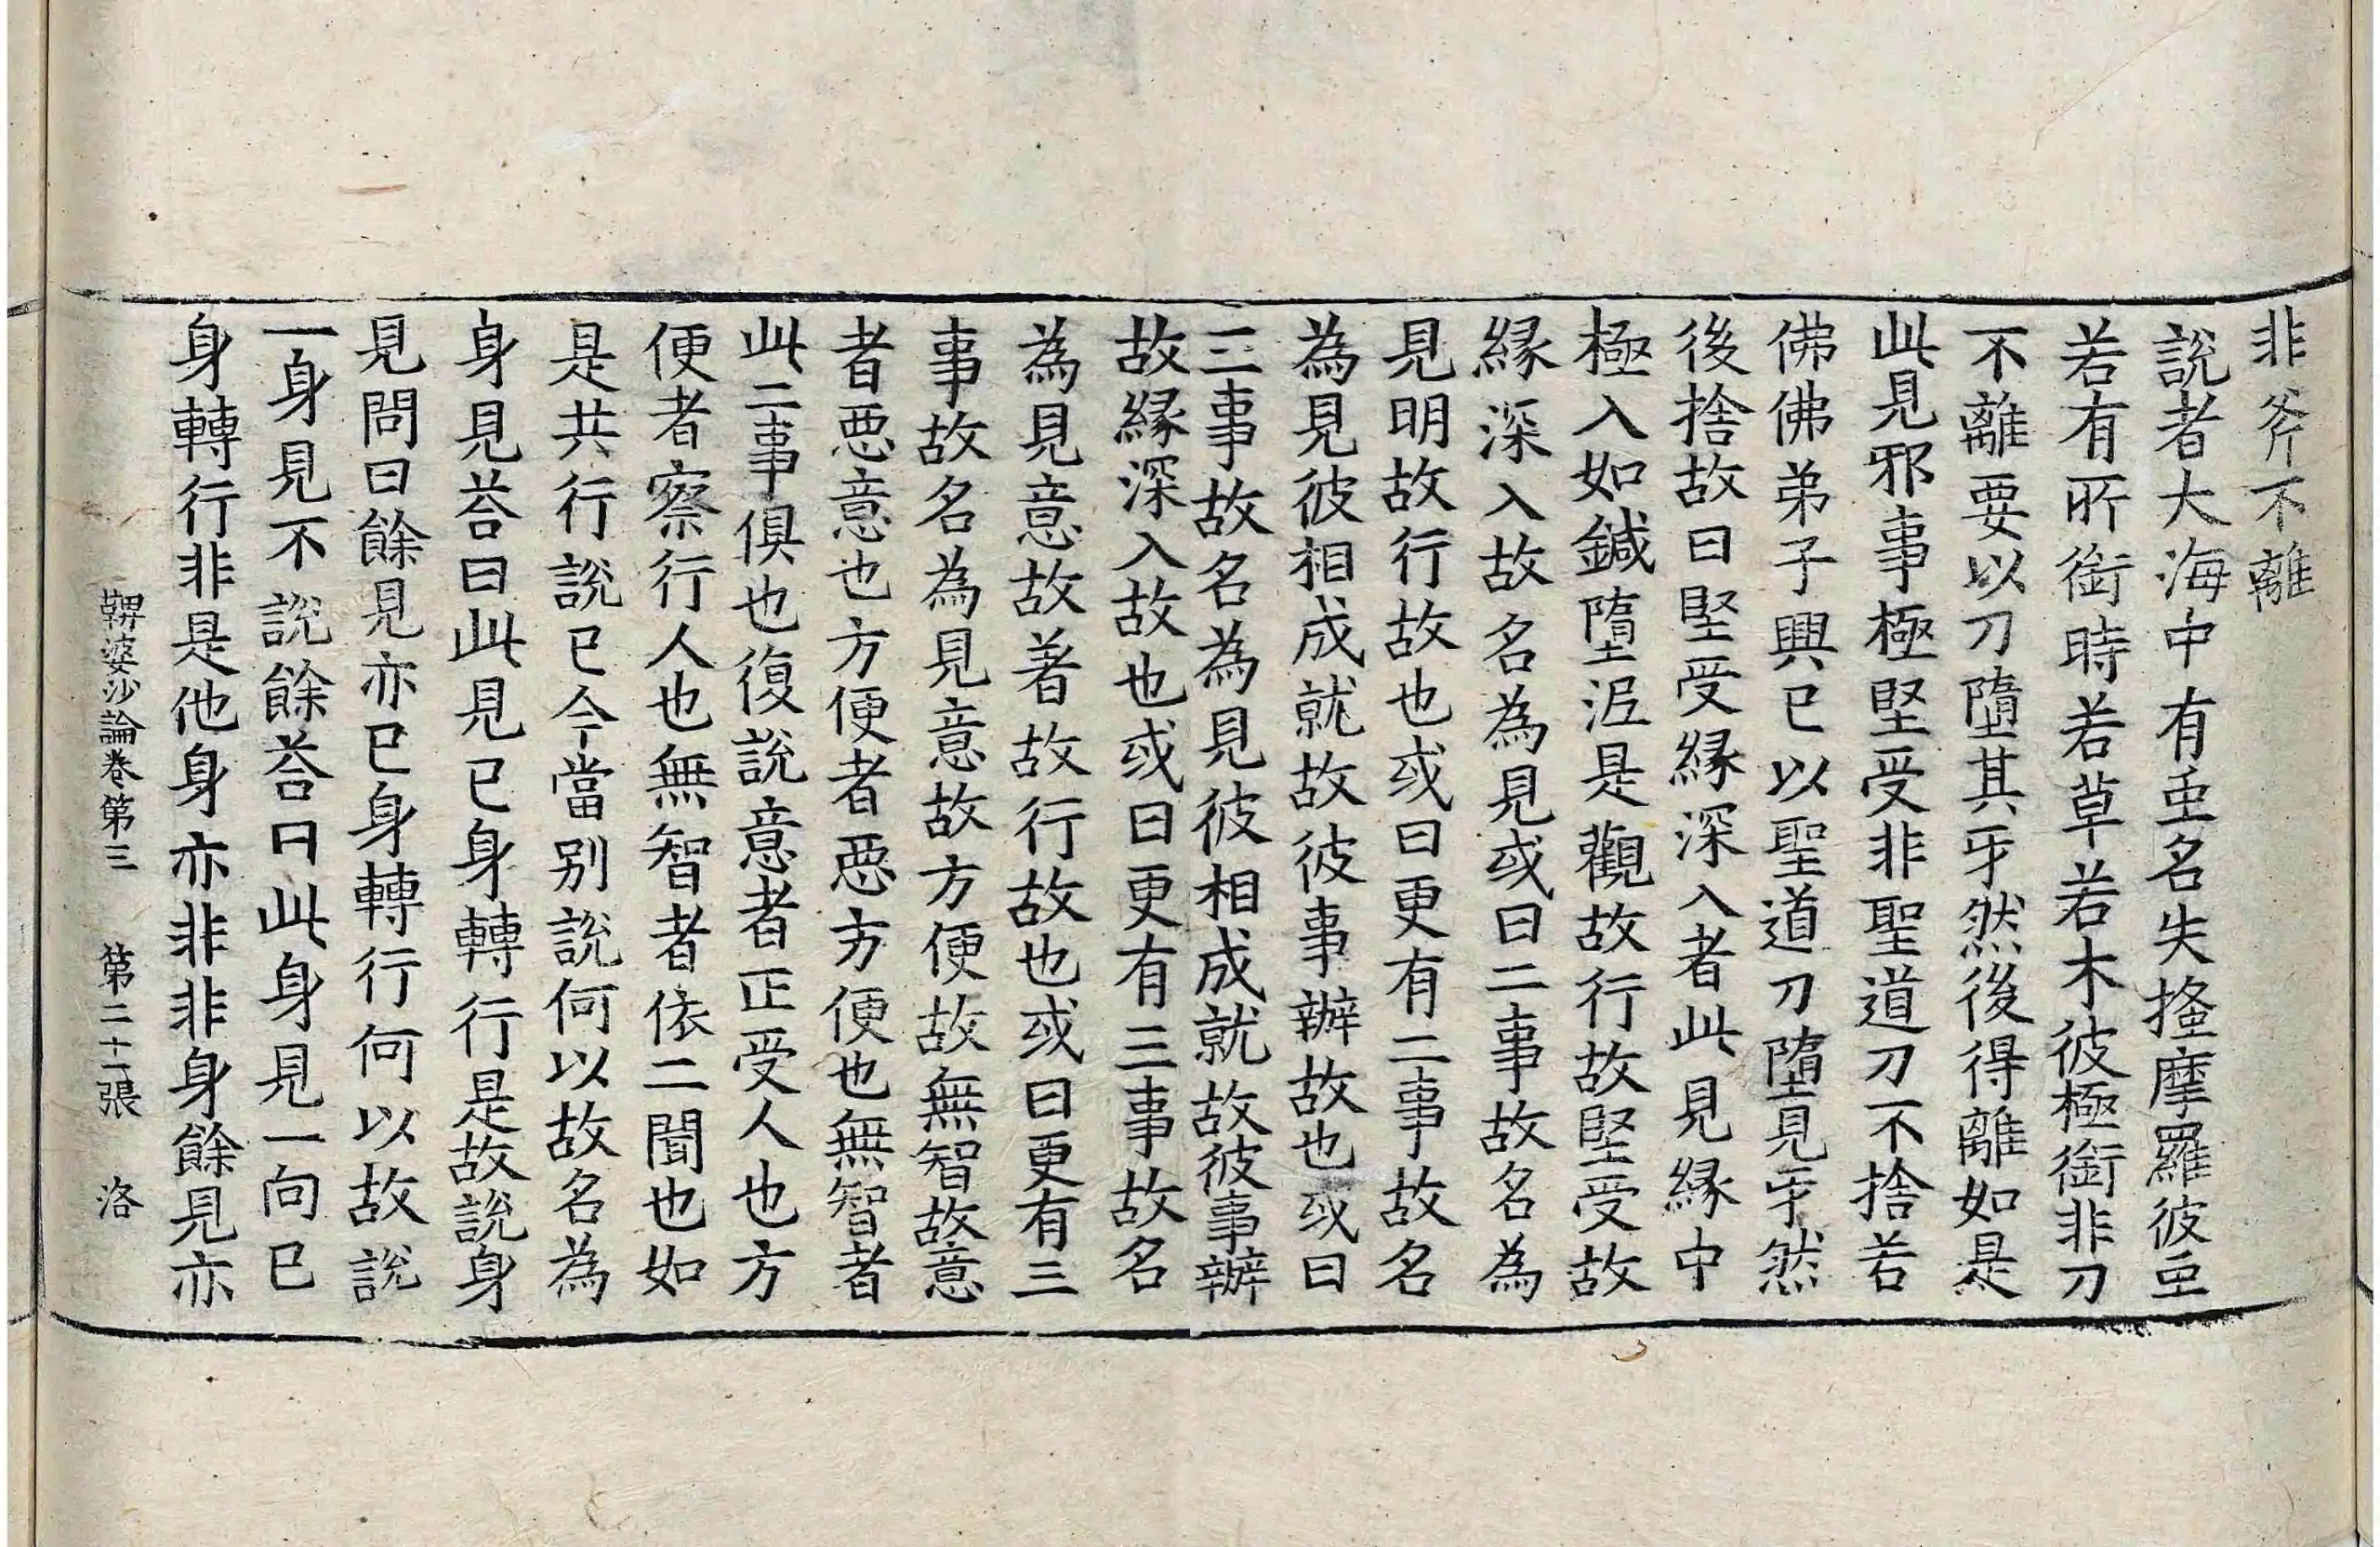 非斧不離
說者大海中有䖝名失摿摩羅彼䖝
若有所銜時若草若木彼極銜非刀
不離要以刀墮其牙然後得離如是
此見邪事極堅受非聖道刀不捨若
佛佛弟子興已以聖道刀墮見牙然
後捨故曰堅受縁深入者此見縁中
極入如鍼墮泥是觀故行故堅受故
縁深入故名為見或曰二事故名為
見明故行故也或曰更有二事故名
為見彼相成就故彼事辦故也或曰
三事故名為見彼相成就故彼事辦
故縁深入故也或曰更有三事故名
為見意故著故行故也或曰更有三
事故名為見意故方便故無智故意
者惡意也方便者惡方便也無智者
此二事俱也復說意者正受人也方
便者察行人也無智者依二聞也如
是共行說已今當別說何以故名為
身見荅曰此見已身轉行是故說身
見問曰餘見亦已身轉行何以故說
一身見不說餘荅曰此身見一向已
身轉行非是他身亦非非身餘見亦
鞞婆沙論卷第三 第二十一張 洛